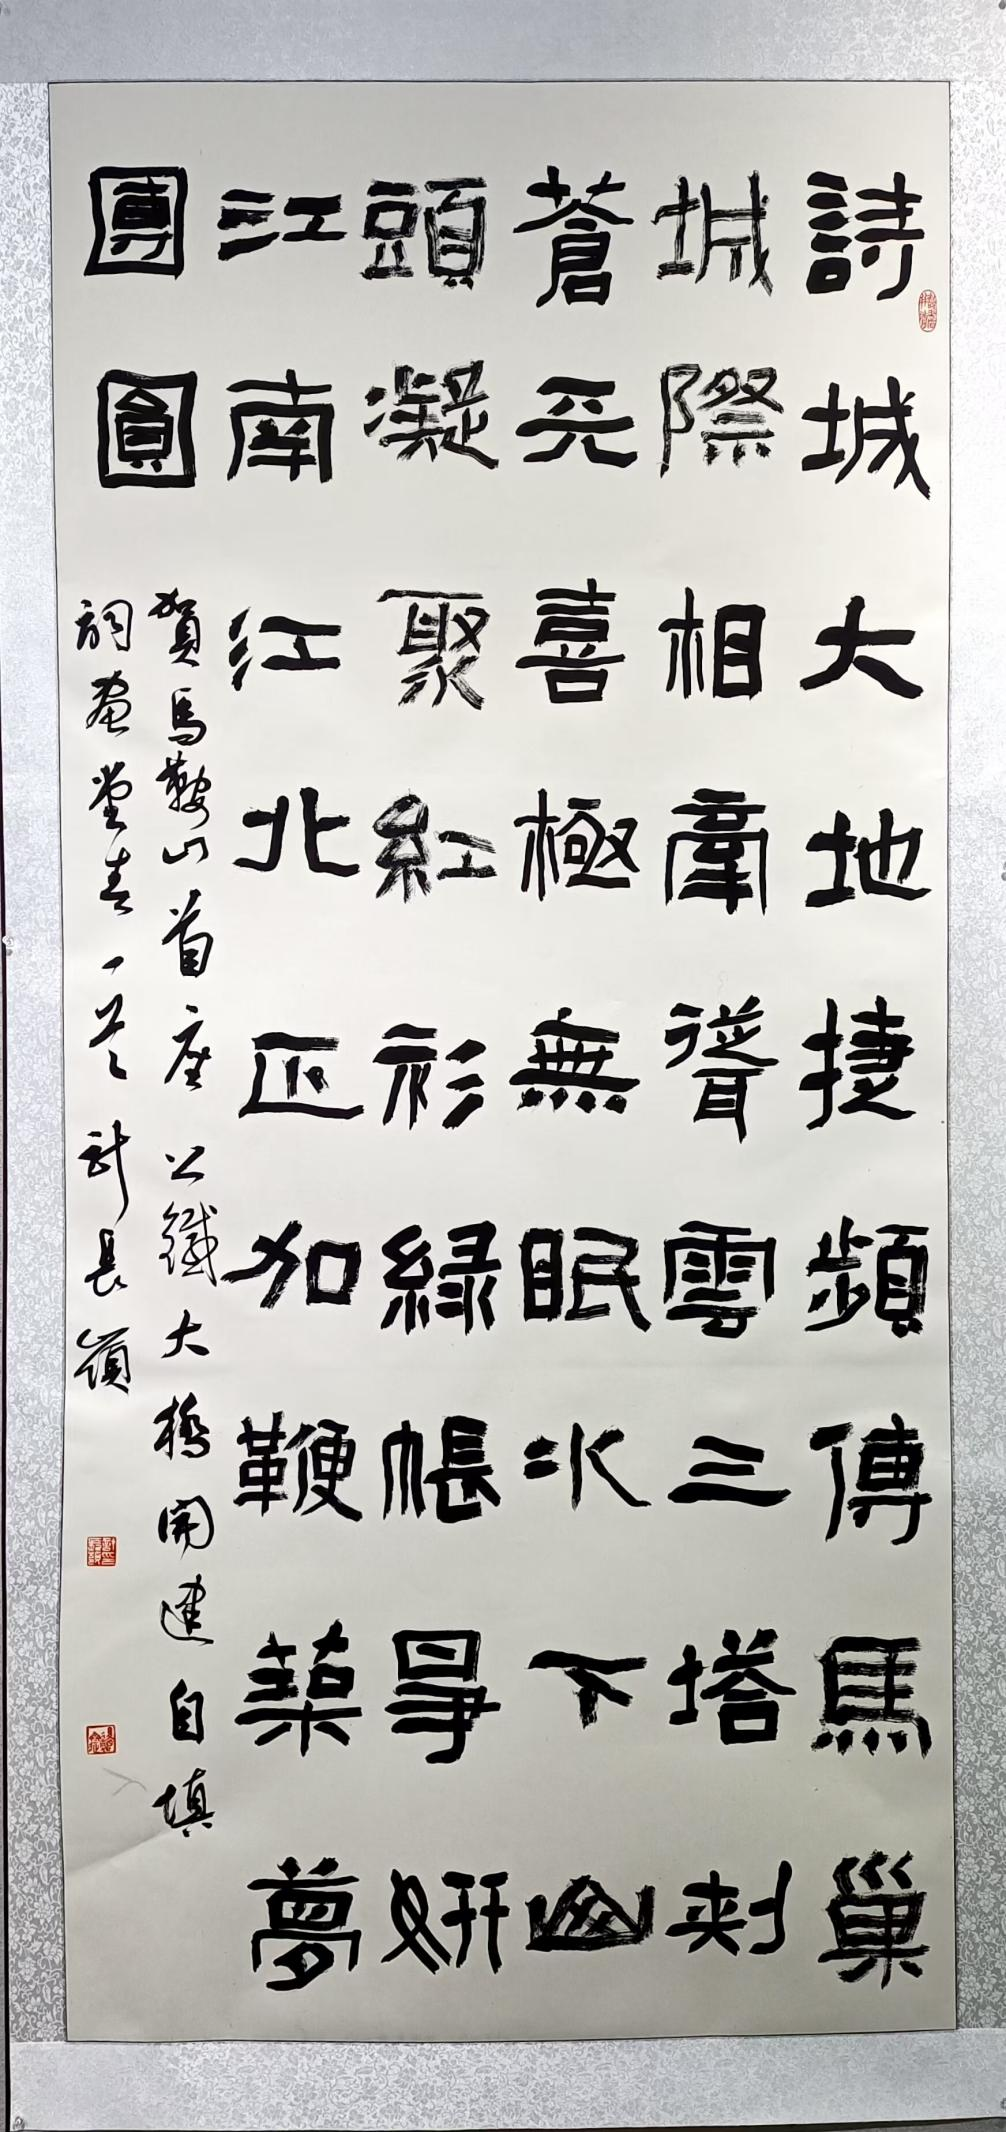 詩城大地捷頻傳馬巢
城際相牽聳雲三塔刺
蒼天喜極無眠水下山
頭凝聚紅衫綠帳爭妍
江南江北正加鞭築夢
團圓
賀馬鞍山首座公鐵大橋開建自填
詞畫堂春一首 計長嶺